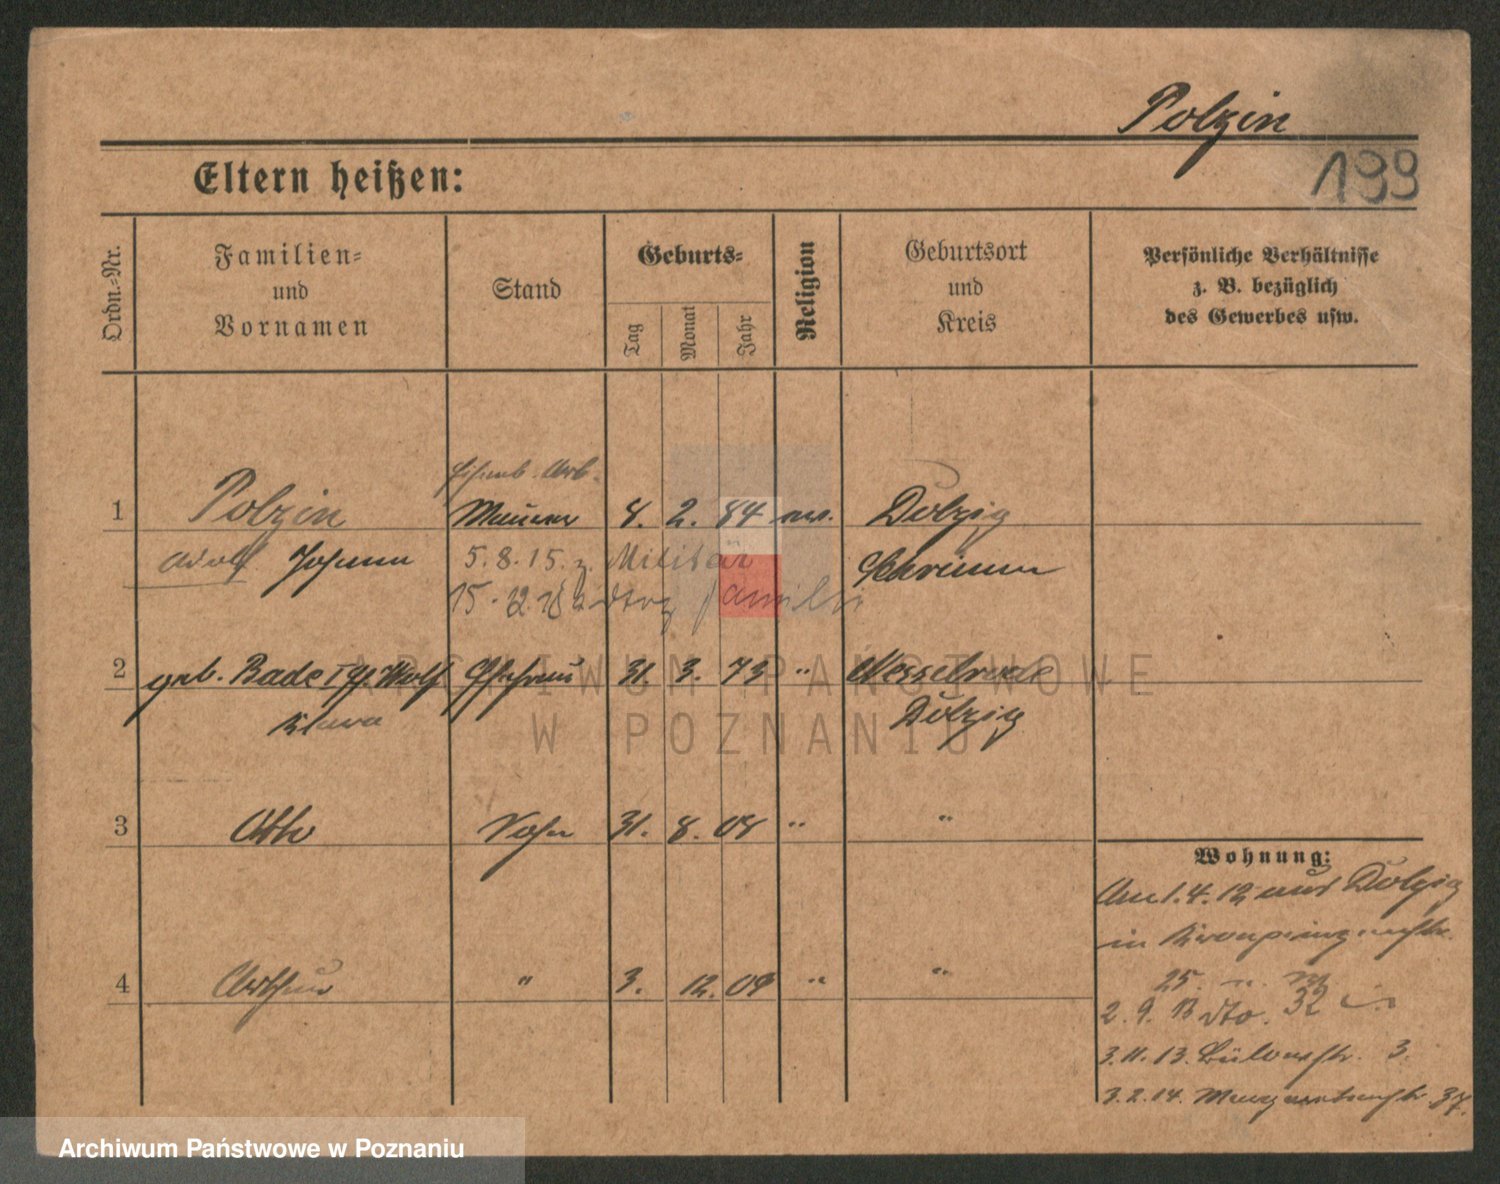 Polzin
199
Eltern heißen:
Ordn.-Nr.
Familien- und Vornamen
Stand
Geburts-
Tag
Monat
Jahr
Religion
Geburtsort und Kreis
Persönliche Verhältnisse
z. B. bezüglich
des Gewerbes usw.
Eisenb. Arb.
1 Polzin Maurer 8. 2. 84 ev. Dolzig
Adolf Johann 5.8.15. z. Militär Schrimm
15.12.18 Familie
2 geb. Bade Wolf Ehefrau 31. 3. 73 " Dolzig
Klara
3 Otto Sohn 31. 8. 08 " "
Wohnung:
Am 1.4.12 aus Dolzig
in Kronprinzenstr.
4 Arthur " 3. 12. 09 " "
25.
2.9.13 dto. 32
3.11.13. Bülowstr. 3.
3.2.14. Margaretenstr. 37.
ARCHIWUM PAŃSTWOWE
W POZNANIU
Archiwum Państwowe w Poznaniu